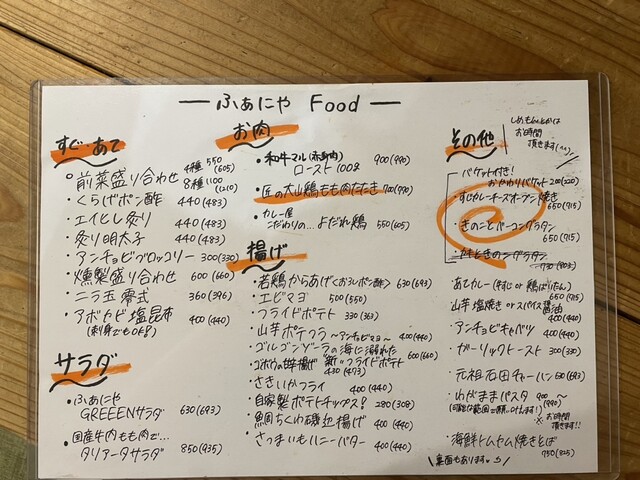 ー ふぁにや Food ー
すぐ…あて
前菜盛り合わせ 4種 550 (605)
8種 1100 (1210)
・くらげポン酢 440 (483)
・エイヒレ炙り 440 (483)
・炙り明太子 440 (483)
・アンチョビブロッコリー 300 (330)
・燻製盛り合わせ 600 (660)
・ニラ玉 零式 360 (396)
・アボカド塩昆布 400 (440)
(刺身でもOK!)
サラダ
・ふぁにや
GREEENサラダ 630 (693)
・国産牛肉もも肉で…
タリアータサラダ 850 (935)
お肉
・和牛マル(赤身肉)
ロースト 100g 900 (990)
・匠の大山鶏もも肉たたき 700 (770)
・カレー屋
こだわりの…よだれ鶏 550 (605)
揚げ
・若鶏からあげ<おろしポン酢> 630 (693)
・エビマヨ 500 (550)
・フライドポテト 330 (363)
・山芋ポテフラ 〜アンチョビマヨ〜 400 (440)
・ゴルゴンゾーラの海に溺れた
フライドポテト 600 (660)
・ゴボウの唐揚げ 430 (473)
・さきいかフライ 400 (440)
・自家製ポテトチップス! 280 (308)
・鯛ちくわ磯辺揚げ 400 (440)
・さつまいもハニーバター 400 (440)
その他
しめもんとかは
お時間
頂きます(^^)
バケット付き!
おかわりバケット 200 (220)
・すじカレーチーズオーブン焼き
650 (715)
・きのことベーコングラタン
650 (715)
730 (803)
・あとカレー (牛すじ or 鶏ばらん)
650 (715)
・山芋塩焼き or スパイス醤油
400 (440)
・アンチョビキャベツ 400 (440)
・ガーリックトースト 300 (330)
・元祖石田チャーハン 630 (693)
・わがままパスタ 900 (990) 〜
※お時間
頂きます!!
・海鮮トムヤム焼きそば
750 (825)
\ 裏面もあります。 /